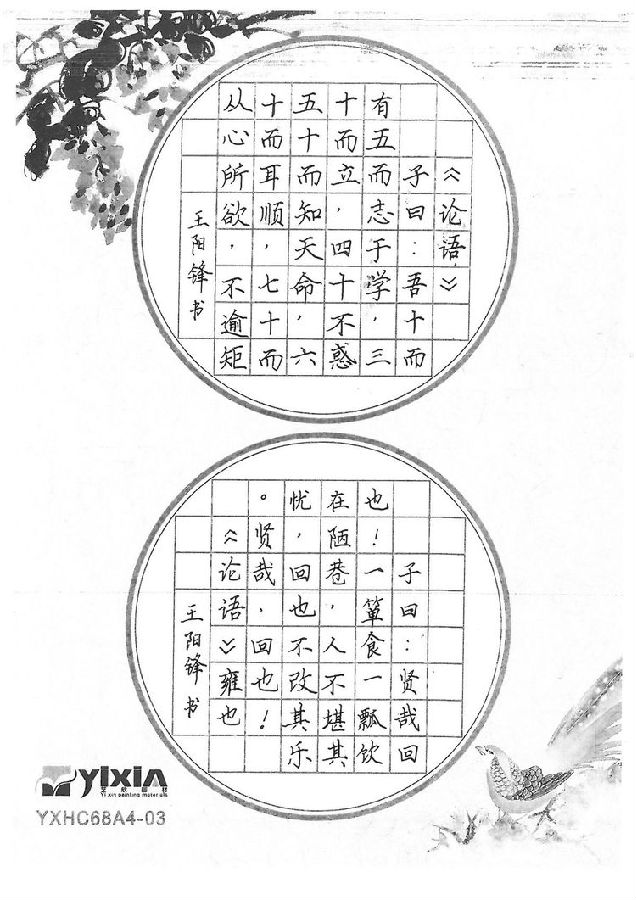 《论语》
子曰：吾十而
有五而志于学，三
十而立，四十不惑
五十而知天命，六
十而耳顺，七十而
从心所欲，不逾矩
王阳锋书
子曰：贤哉回
也！一箪食一瓢饮
在陋巷，人不堪其
忧，回也不改其乐
。贤哉，回也！
《论语》雍也
王阳锋书
yixin
Yi xin painting materials
YXHC68A4-03